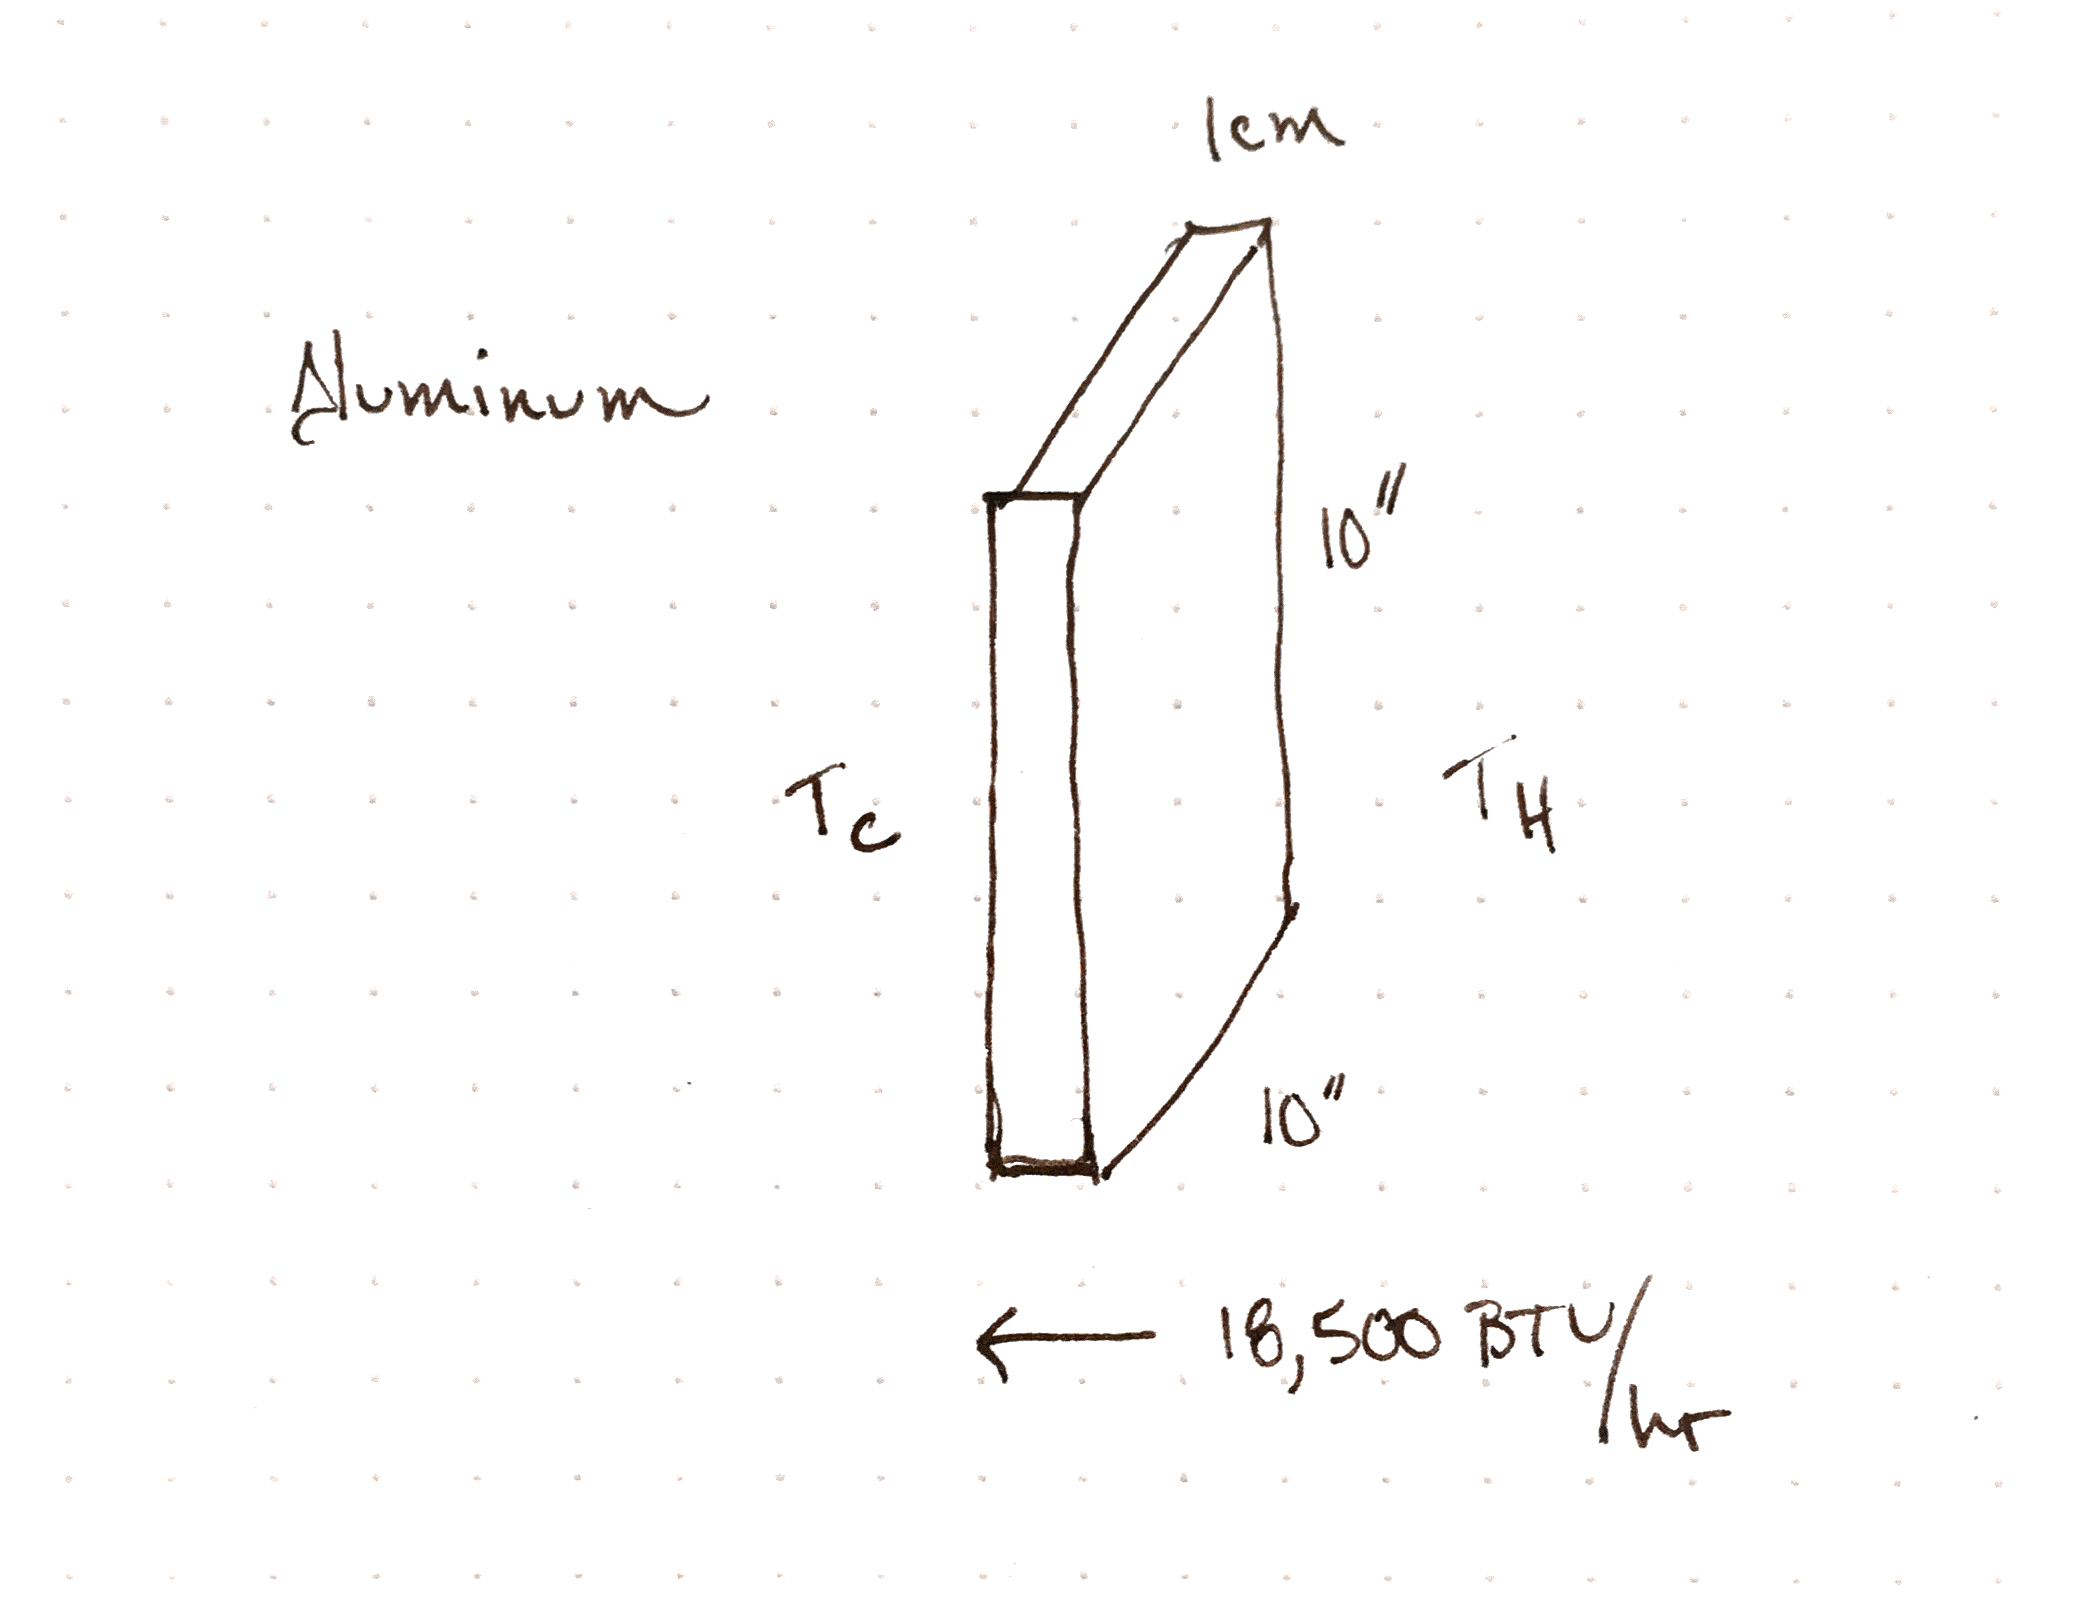 1cm
Aluminum
10"
T_C
T_H
10"
18,500 BTU/hr